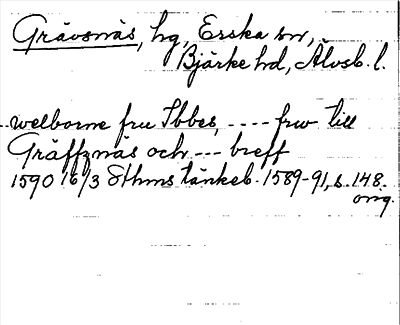 Grävsnäs, hg, Erska sn,
Bjärke hd, Älvsb. l.
welborne fru Ibbes, ---- frw till
Gräffznäs och --- breff
1590 16/3 Sthms tänkeb. 1589-91, s. 148.
orig.